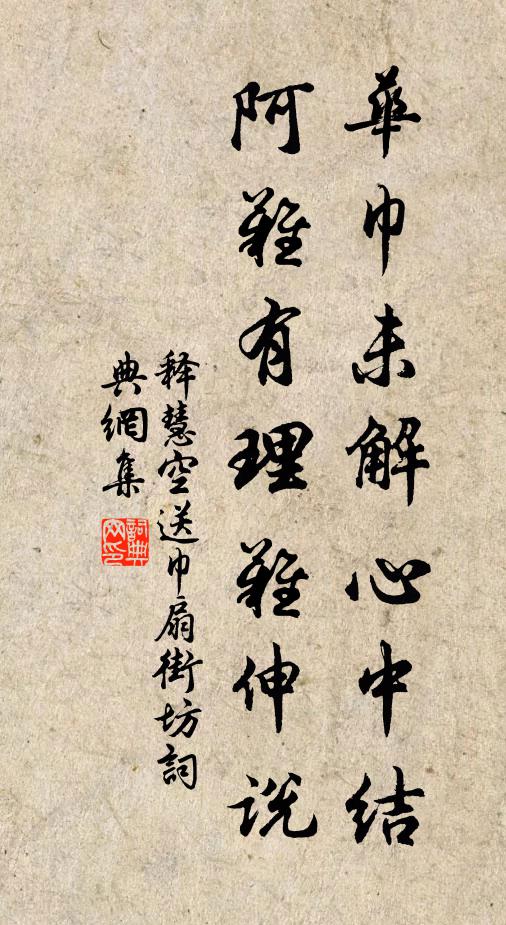 華巾未解心中結
阿難有理難伸説
释慧空送巾扇街坊詞
典網集
詞典网印